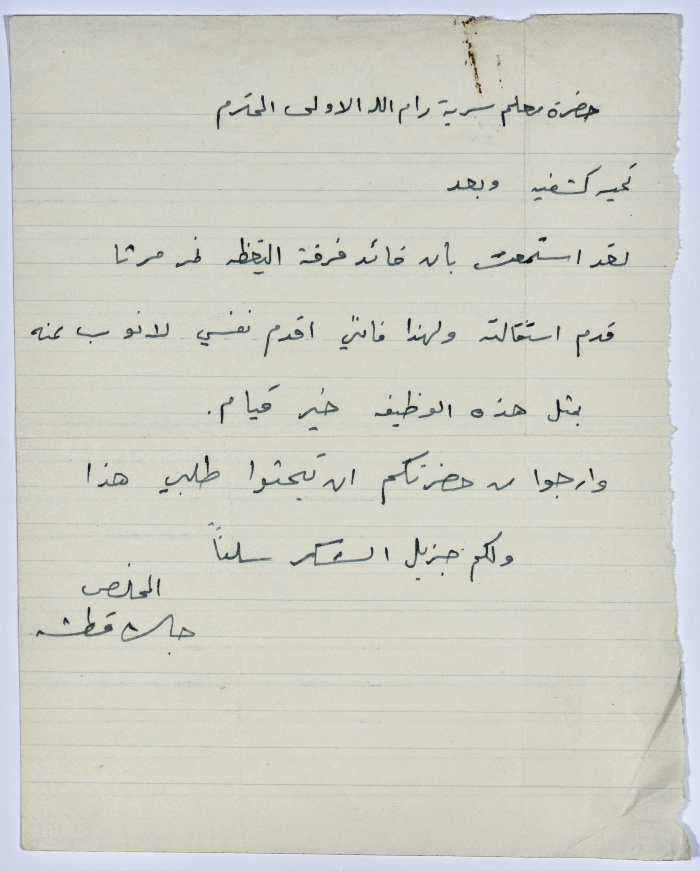 حضرة معلم سرية رام الله الاولى المحترم
تحيه كشفيه وبعد
لقد استمعت بان قائد فرقة اليقظه نمر مرشا
قدم استقالته ولهذا فانني اقدم نفسي لانوب عنه
بمثل هذه الوظيفه خير قيام.
وارجوا من حضرتكم ان تبحثوا طلبي هذا
ولكم جزيل الشكر سلفاً
المخلص
جاك قطشه